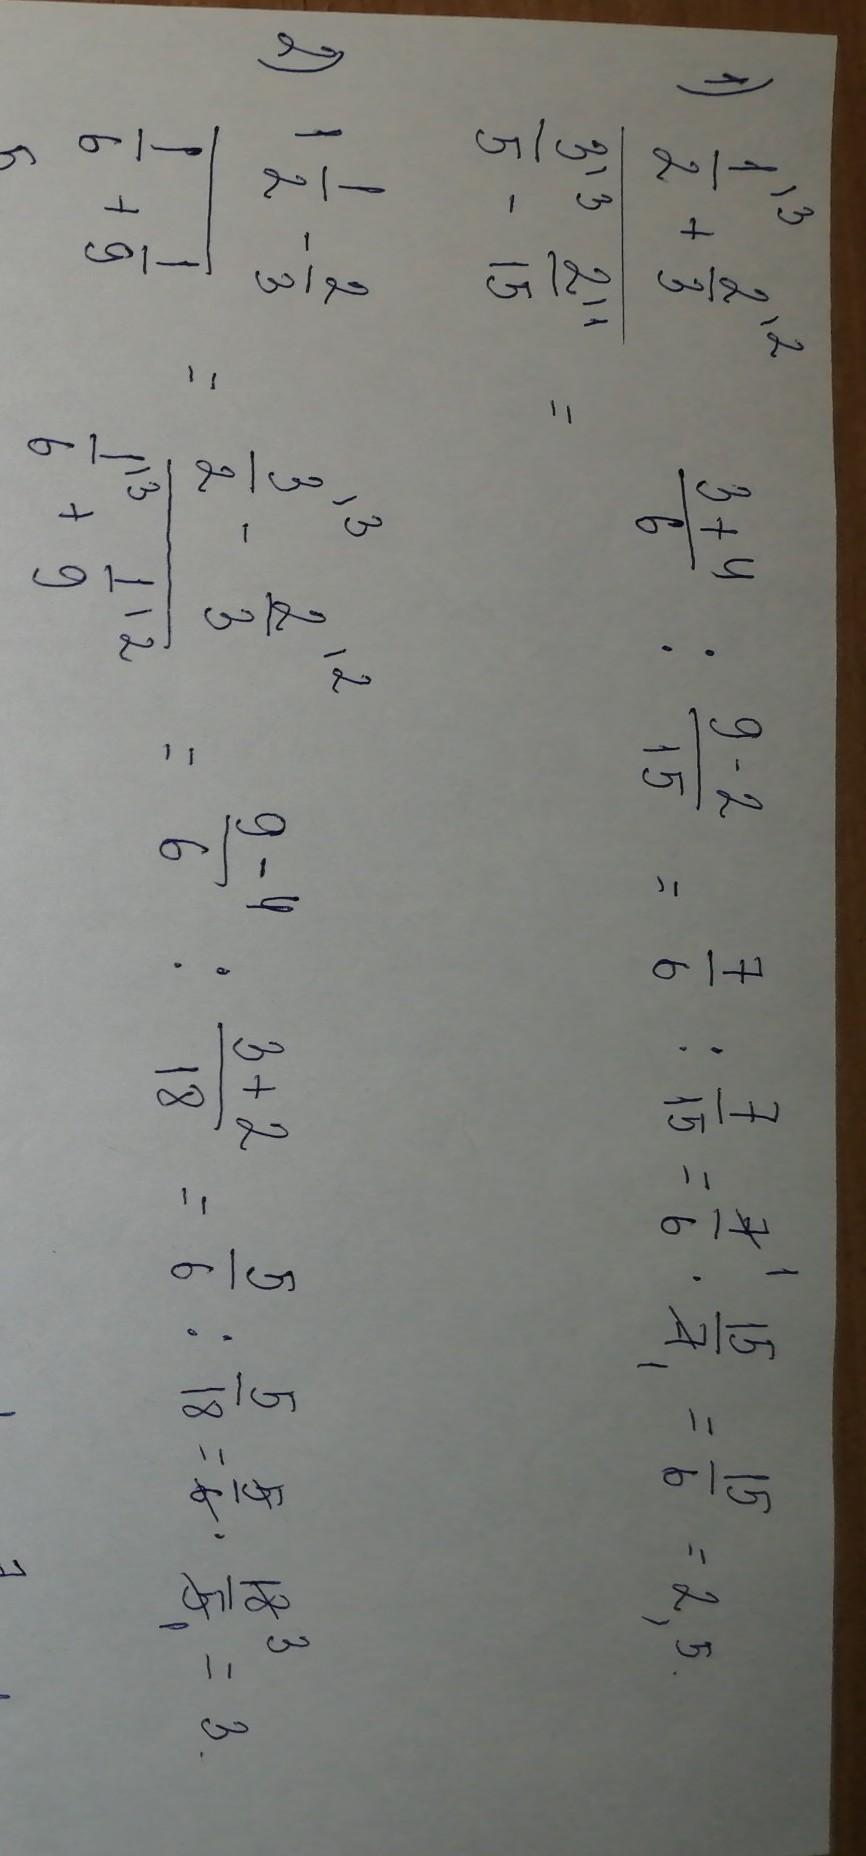 1) (1/2 + 2/3) / (3/5 - 2/15) = (3+4)/6 : (9-2)/15 = 7/6 : 7/15 = 7/6 · 15/7 = 15/6 = 2,5.
2) (1 1/2 - 2/3) / (1/6 + 1/9) = (3/2 - 2/3) / (1/6 + 1/9) = (9-4)/6 : (3+2)/18 = 5/6 : 5/18 = 5/6 · 18/5 = 3.